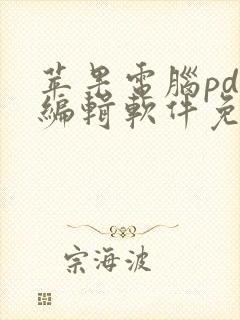 苹果電腦pd
編輯軟件免
宗海波